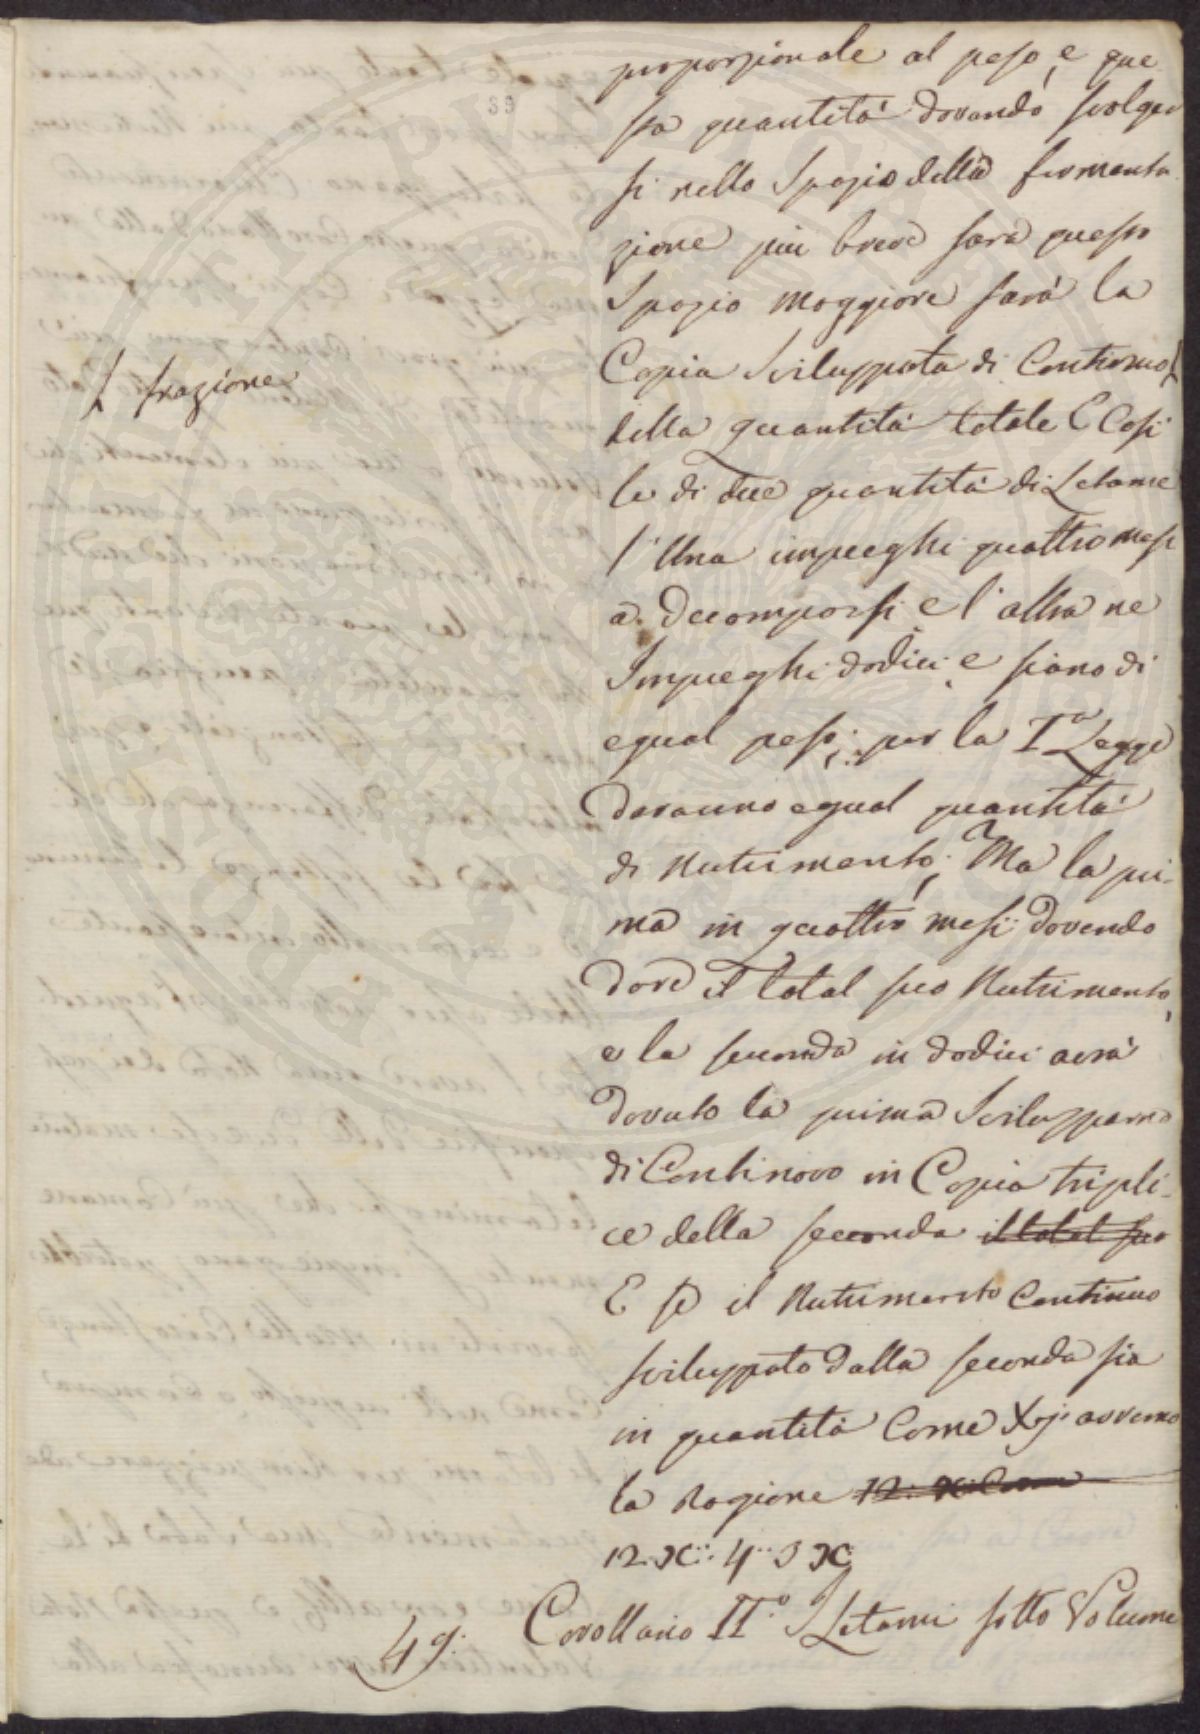 39
proporzionale al peso, e que
sta quantità dovendo svolger
si nello Spazio della fermenta
zione piu breve sarà questo
Spazio maggiore sarà la
Copia Sviluppata di Continuo
ſ frazione
della quantità totale E Cosi
se di due quantità di Letame
l'Una impieghi quattro mesi
a Decomporsi e l'altra ne
Impieghi dodici, e siano di
egual peso; per la I.a Legge
daranno egual quantità
di Nutrimento; Ma la pri-
ma in quattro mesi dovendo
dare il total suo Nutrimento,
e la seconda in dodici avrà
dovuto la prima Sviluppare
di Continovo in Copia tripli-
ce della seconda il total suo
E se il Nutrimento Continuo
sviluppato dalla seconda sia
in quantità Come X avremo
la Ragione 12: x: Come
12. x:: 4:: 3 x
Corollario II.o I Letami sotto Volume
49.